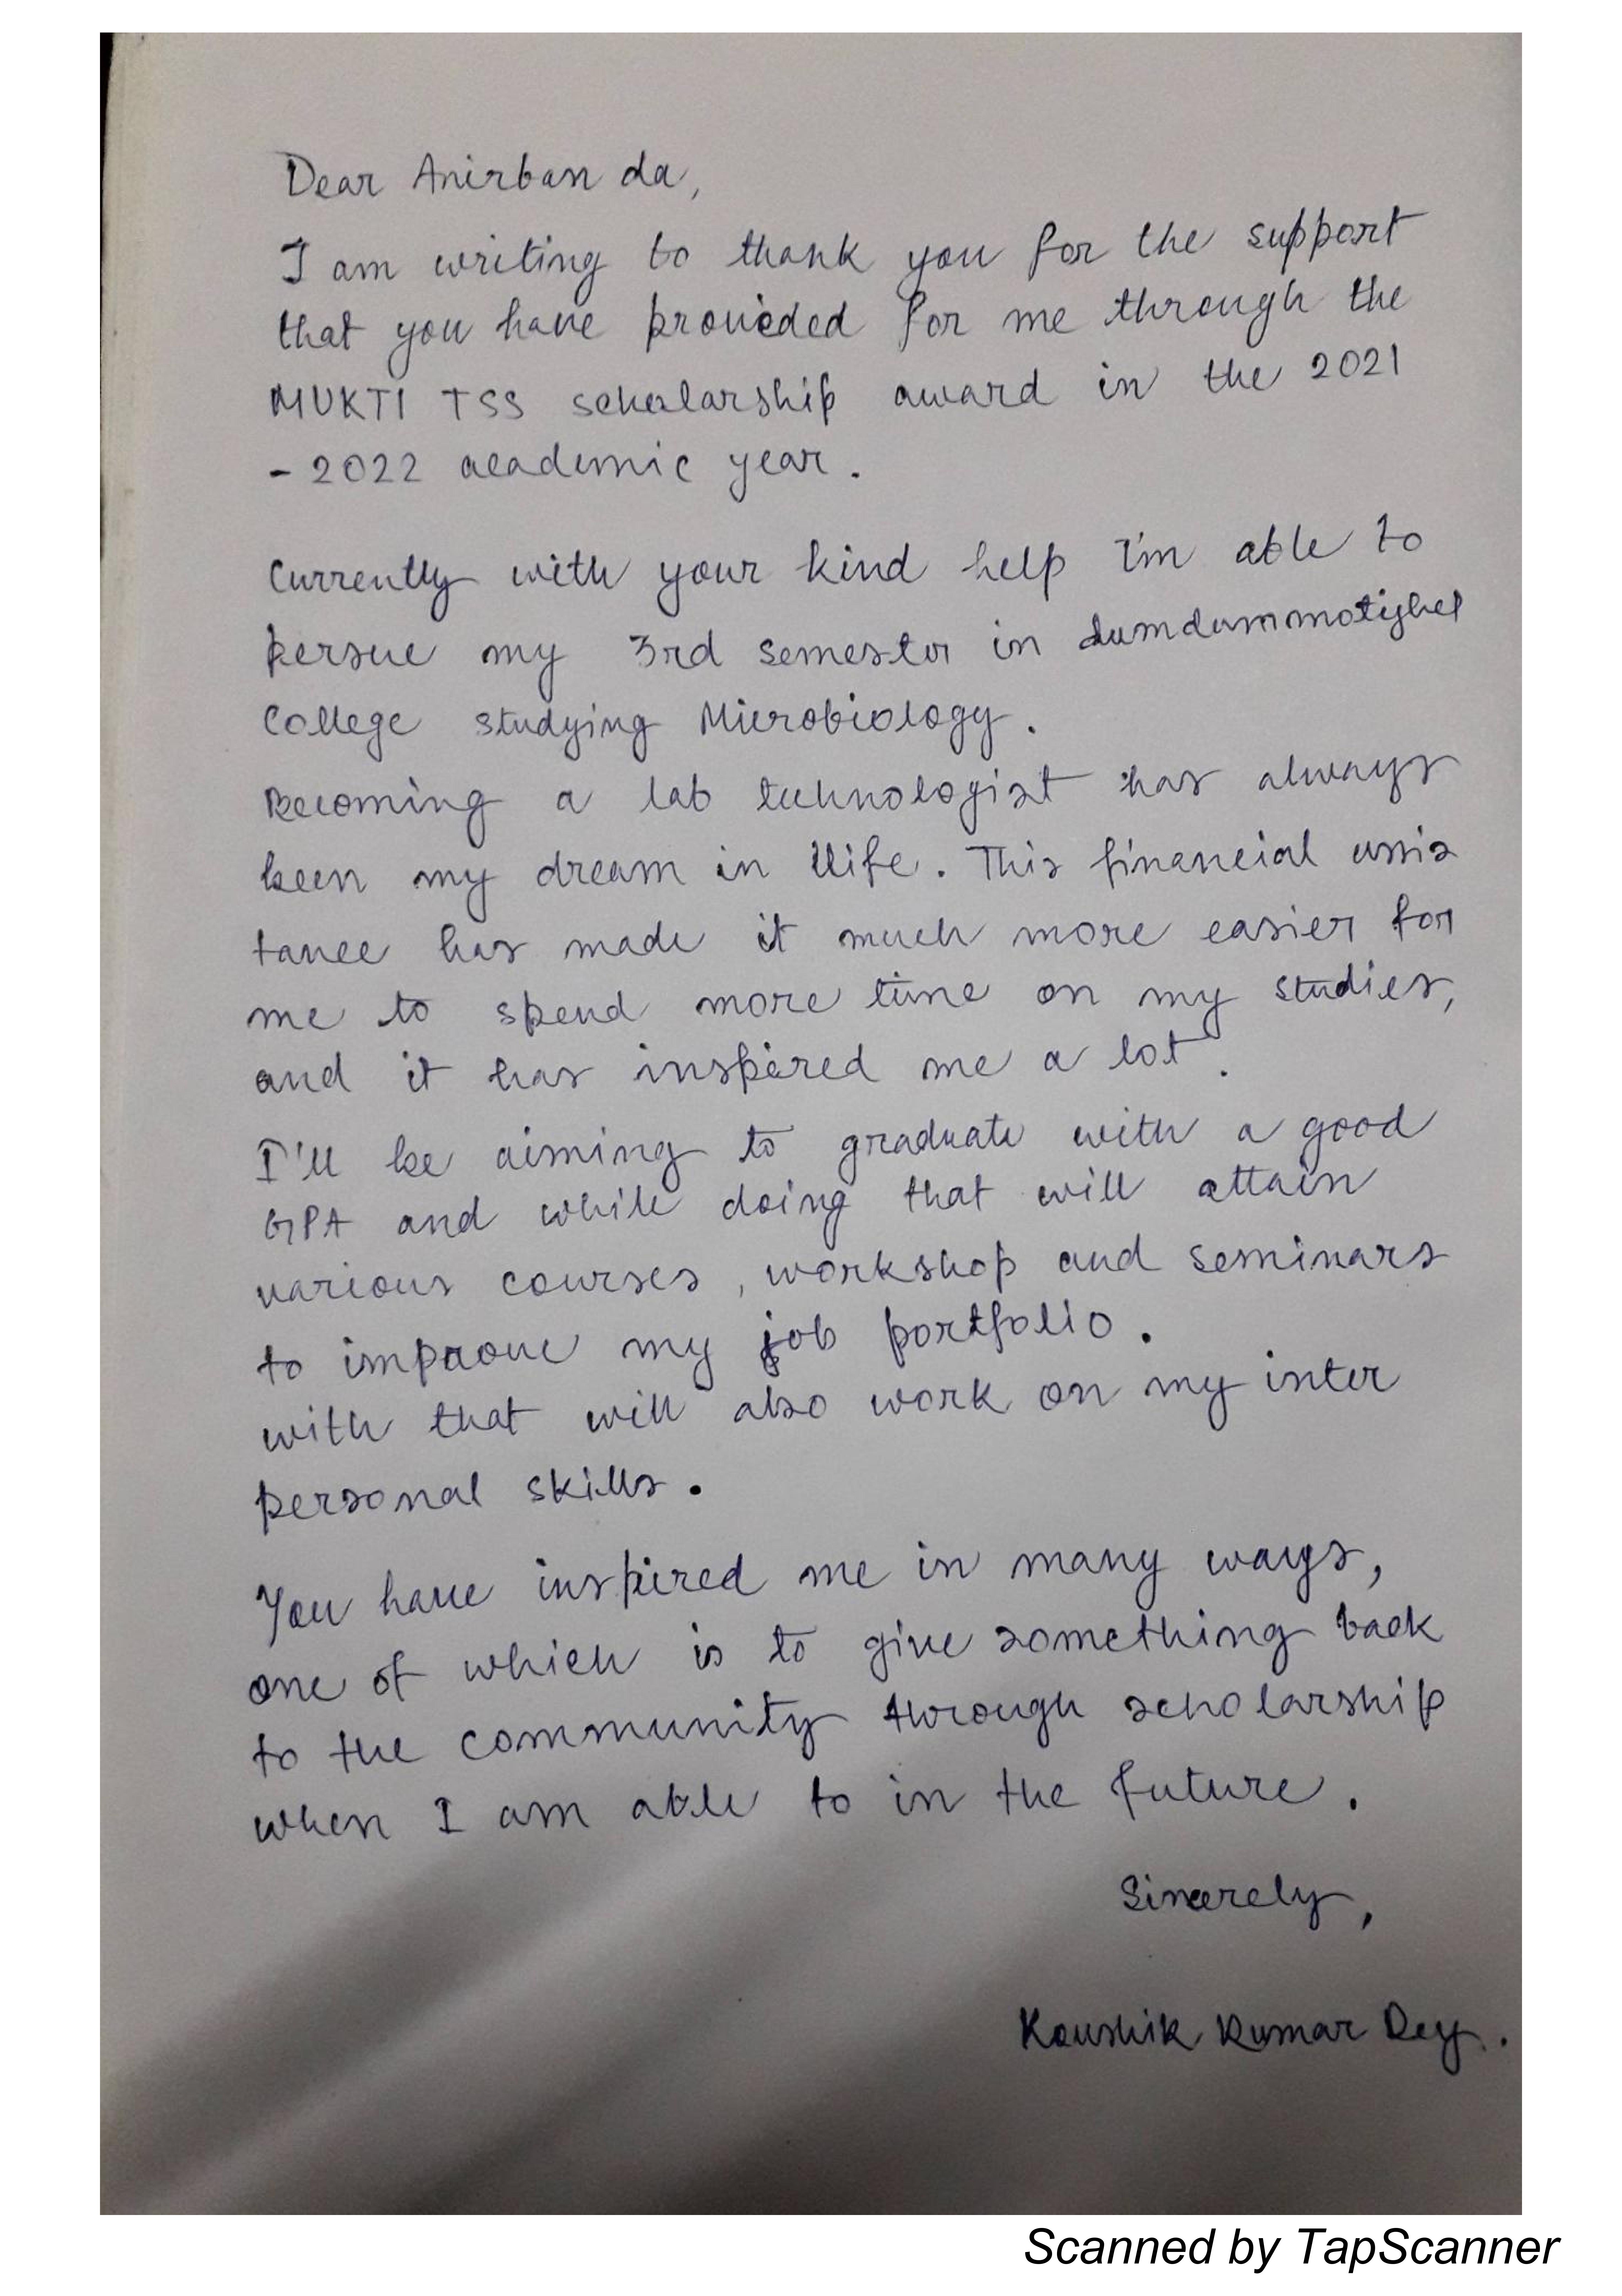 Dear Anirban da,
I am writing to thank you for the support
that you have provided for me through the
MUKTI TSS scholarship award in the 2021
- 2022 academic year.
Currently with your kind help I'm able to
persue my 3rd semester in dumdummotijhel
College studying Microbiology.
Becoming a lab technologist has always
been my dream in life. This financial assis
tance has made it much more easier for
me to spend more time on my studies,
and it has inspired me a lot.
I'll be aiming to graduate with a good
GPA and while doing that will attain
various courses, workshop and seminars
to improve my job portfolio.
with that will also work on my inter
personal skills.
You have inspired me in many ways,
one of which is to give something back
to the community through scholarship
when I am able to in the future.
Sincerely,
Koushik Kumar Dey.
Scanned by TapScanner